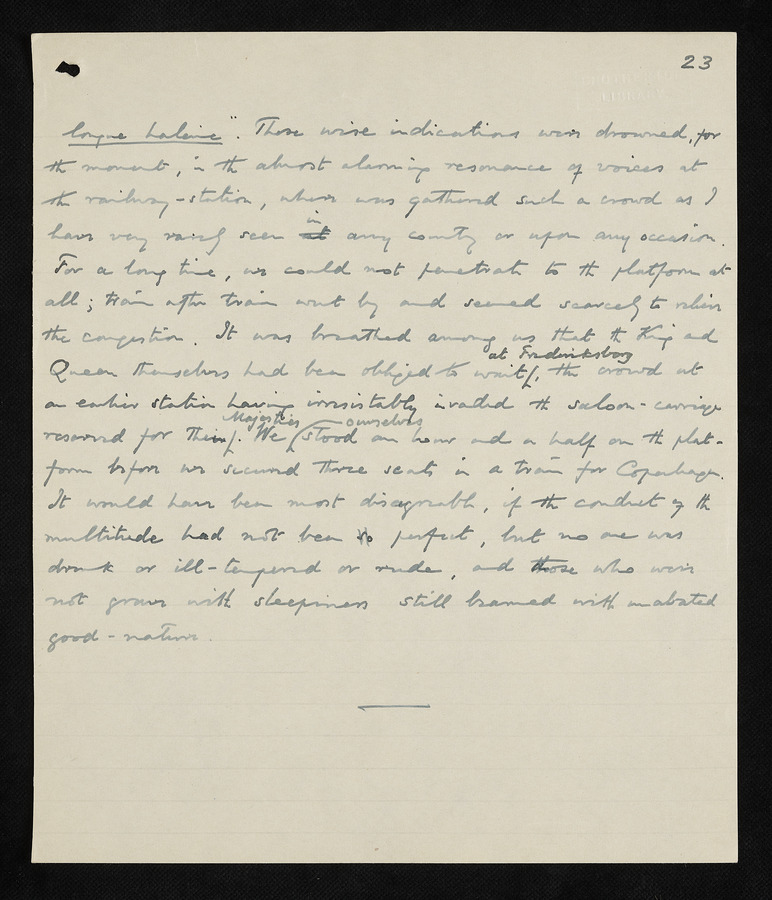 23
longue haleine". These wise indications were drowned, for
the moment, in the almost alarming resonance of voices at
the railway-station, where was gathered such a crowd as I
have very rarely seen at in any country or upon any occasion.
For a long time, we could not penetrate to the platform at
all; train after train went by and seemed scarcely to relieve
the congestion. It was breathed among us that the King and
at Fredericksborg
Queen themselves had been obliged to wait, the crowd at
an earlier station having irresistably invaded the saloon-carriage
Majesties ourselves
reserved for their. We stood an hour and a half on the plat-
form before we secured three seats in a train for Copenhagen.
It would have been most disagreeable, if the conduct of the
multitude had not been so perfect, but no one was
drunk or ill-tempered or rude, and those who were
not grave with sleepiness still beamed with unabated
good-nature.